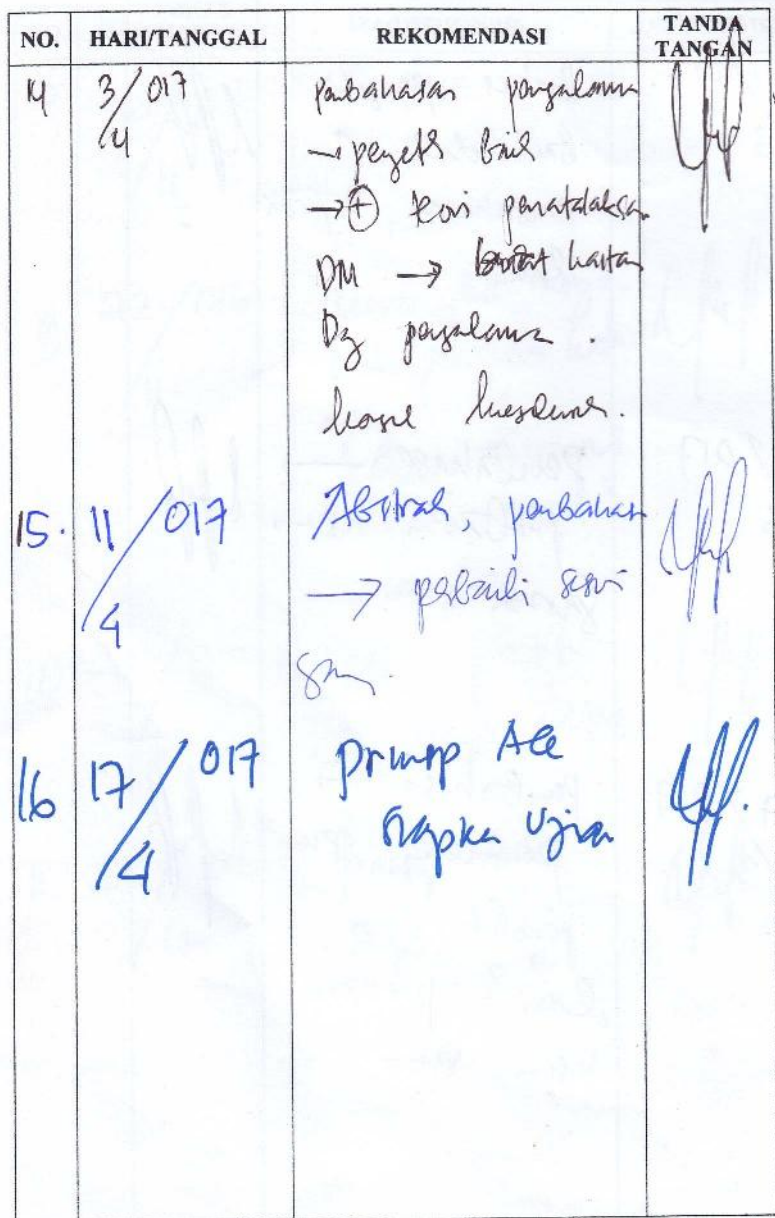 NO. HARI/TANGGAL REKOMENDASI TANDA TANGAN
14 3/4 017 pembahasan pengalaman
→
→ + teori penatalaksan
DM → buat kaitan
Dg pengalaman .
15. 11/4 017 Abstrak, pembahasan
→ perbaiki sesuai
16 17/4 017 prinsip Acc
siapkan Ujian